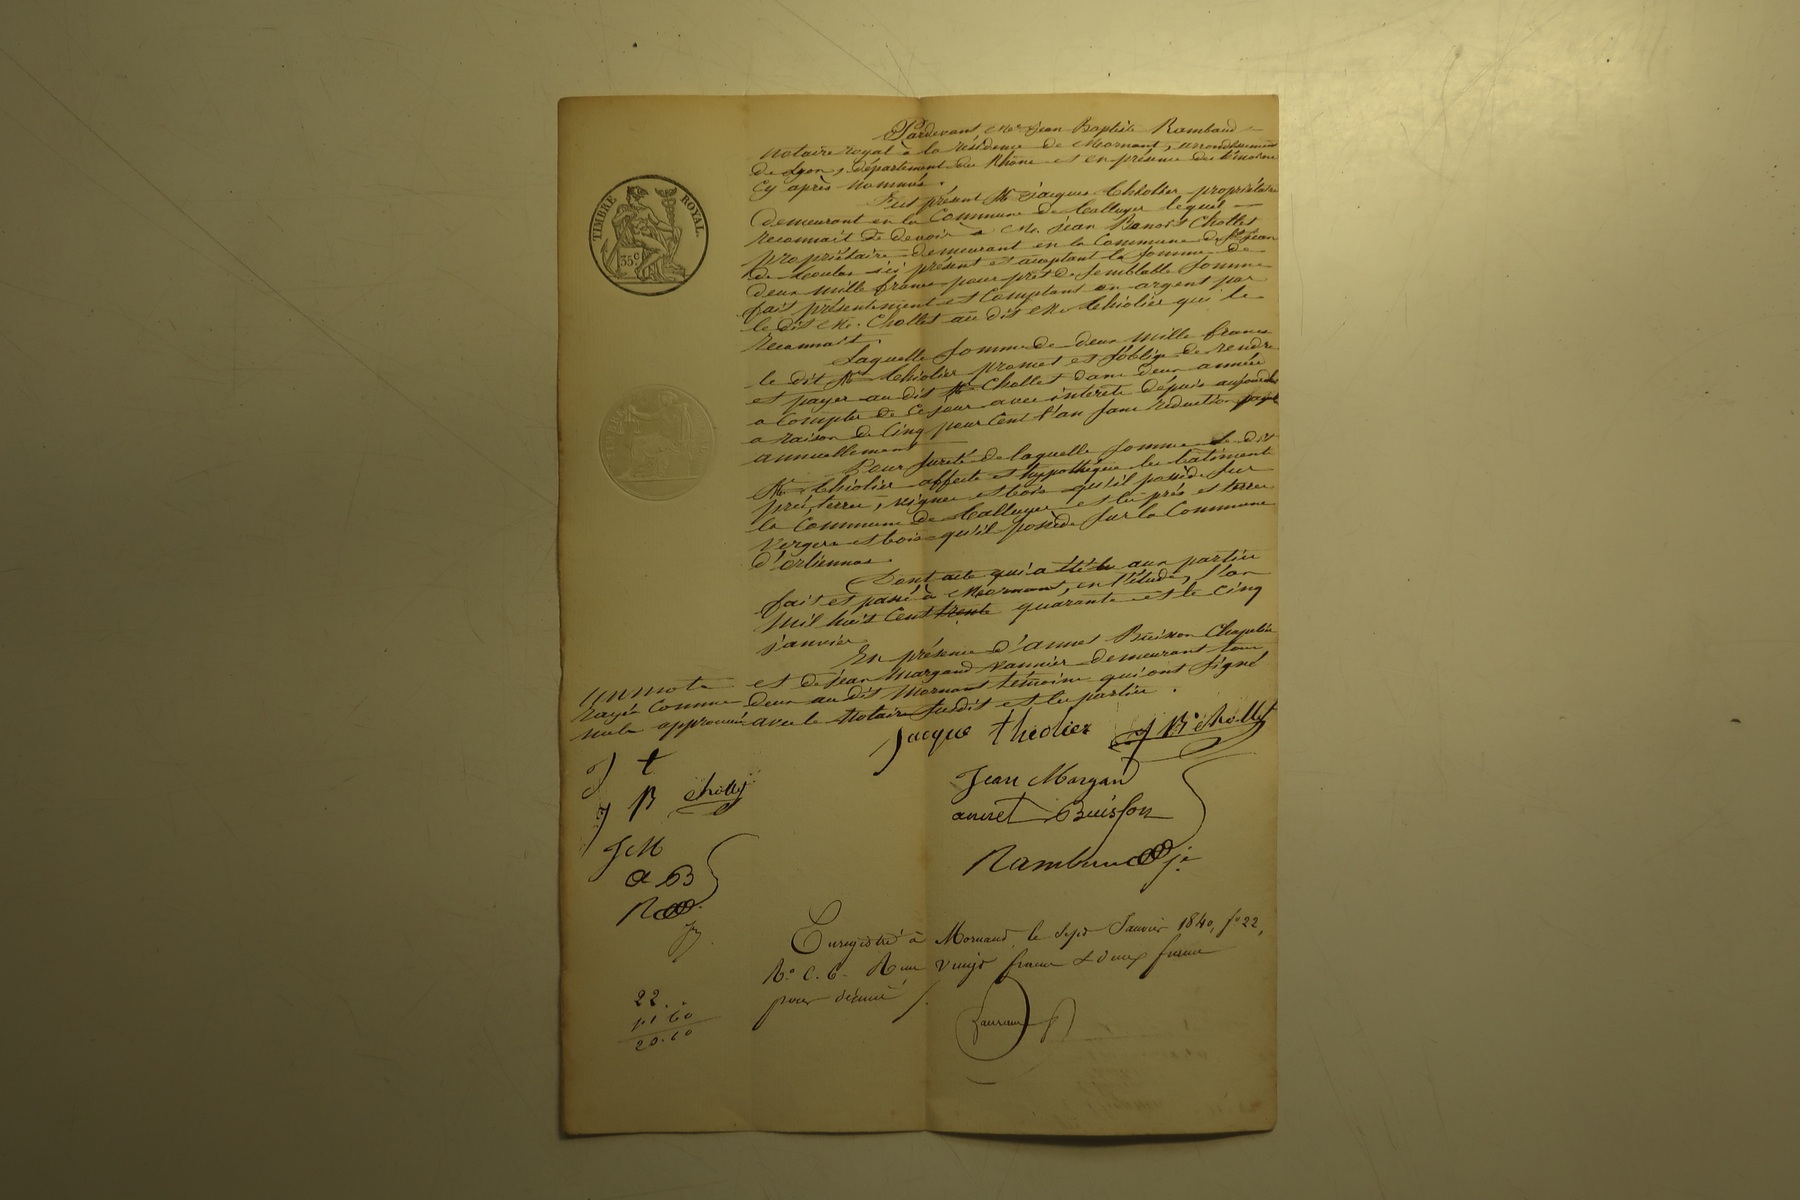 TIMBRE ROYAL.
35c
Pardevant Me Jean Baptiste Rambaud
notaire royal à la résidence de Mornant, arrondissement
de Lyon, département du Rhône et en présence des témoins
cy après nommés.
Fut présent Mr Jacques Théolier propriétaire
demeurant en la Commune de Talluyer lequel
reconnait de devoir à Mr. Jean Benoit Chollet
propriétaire demeurant en la Commune de St Jean
de ici présent et acceptant la somme de
deux mille francs pour prêt de semblable somme
fait présentement et comptant en argent par
le dit Mr. Chollet au dit Mr Théolier qui le
reconnait.
Laquelle somme de deux mille francs
le dit Mr Théolier promet et s'oblige de rendre
et payer au dit Mr Chollet dans deux années
a compter de ce jour avec intérêts depuis aujourdhui
a raison de cinq pour cent l'an sans réduction
annuellement
Pour sureté de laquelle somme le dit
Mr. Théolier affecte et hypothèque les batiments
prés, terres, vignes et bois qu'il possède sur
la Commune de Talluyer et les prés et terres
vergers et bois qu'il possède sur la Commune
d'orliennas
Dont acte qui a été lu aux parties
fait et passé à Mornant, en l'étude, l'an
mil huit cent trente quarante et le cinq
janvier
En présence d'annet Buisson Chapelier
un mot et de jean Margand vannier demeurant tous
rayés comme deux au dit Mornant témoins qui ont signé
nuls approuvés avec le Notaire susdit et les parties.
Jacque théolier J Bt chollet
J t
J B chollet
Jean Margand
annet Buisson
J M
a B
Rambaud
R
Enregistré à Mornant, le sept Janvier 1840, fo 22,
Ro C. 6. Reçu vingt francs & deux francs
pour décime
22
60